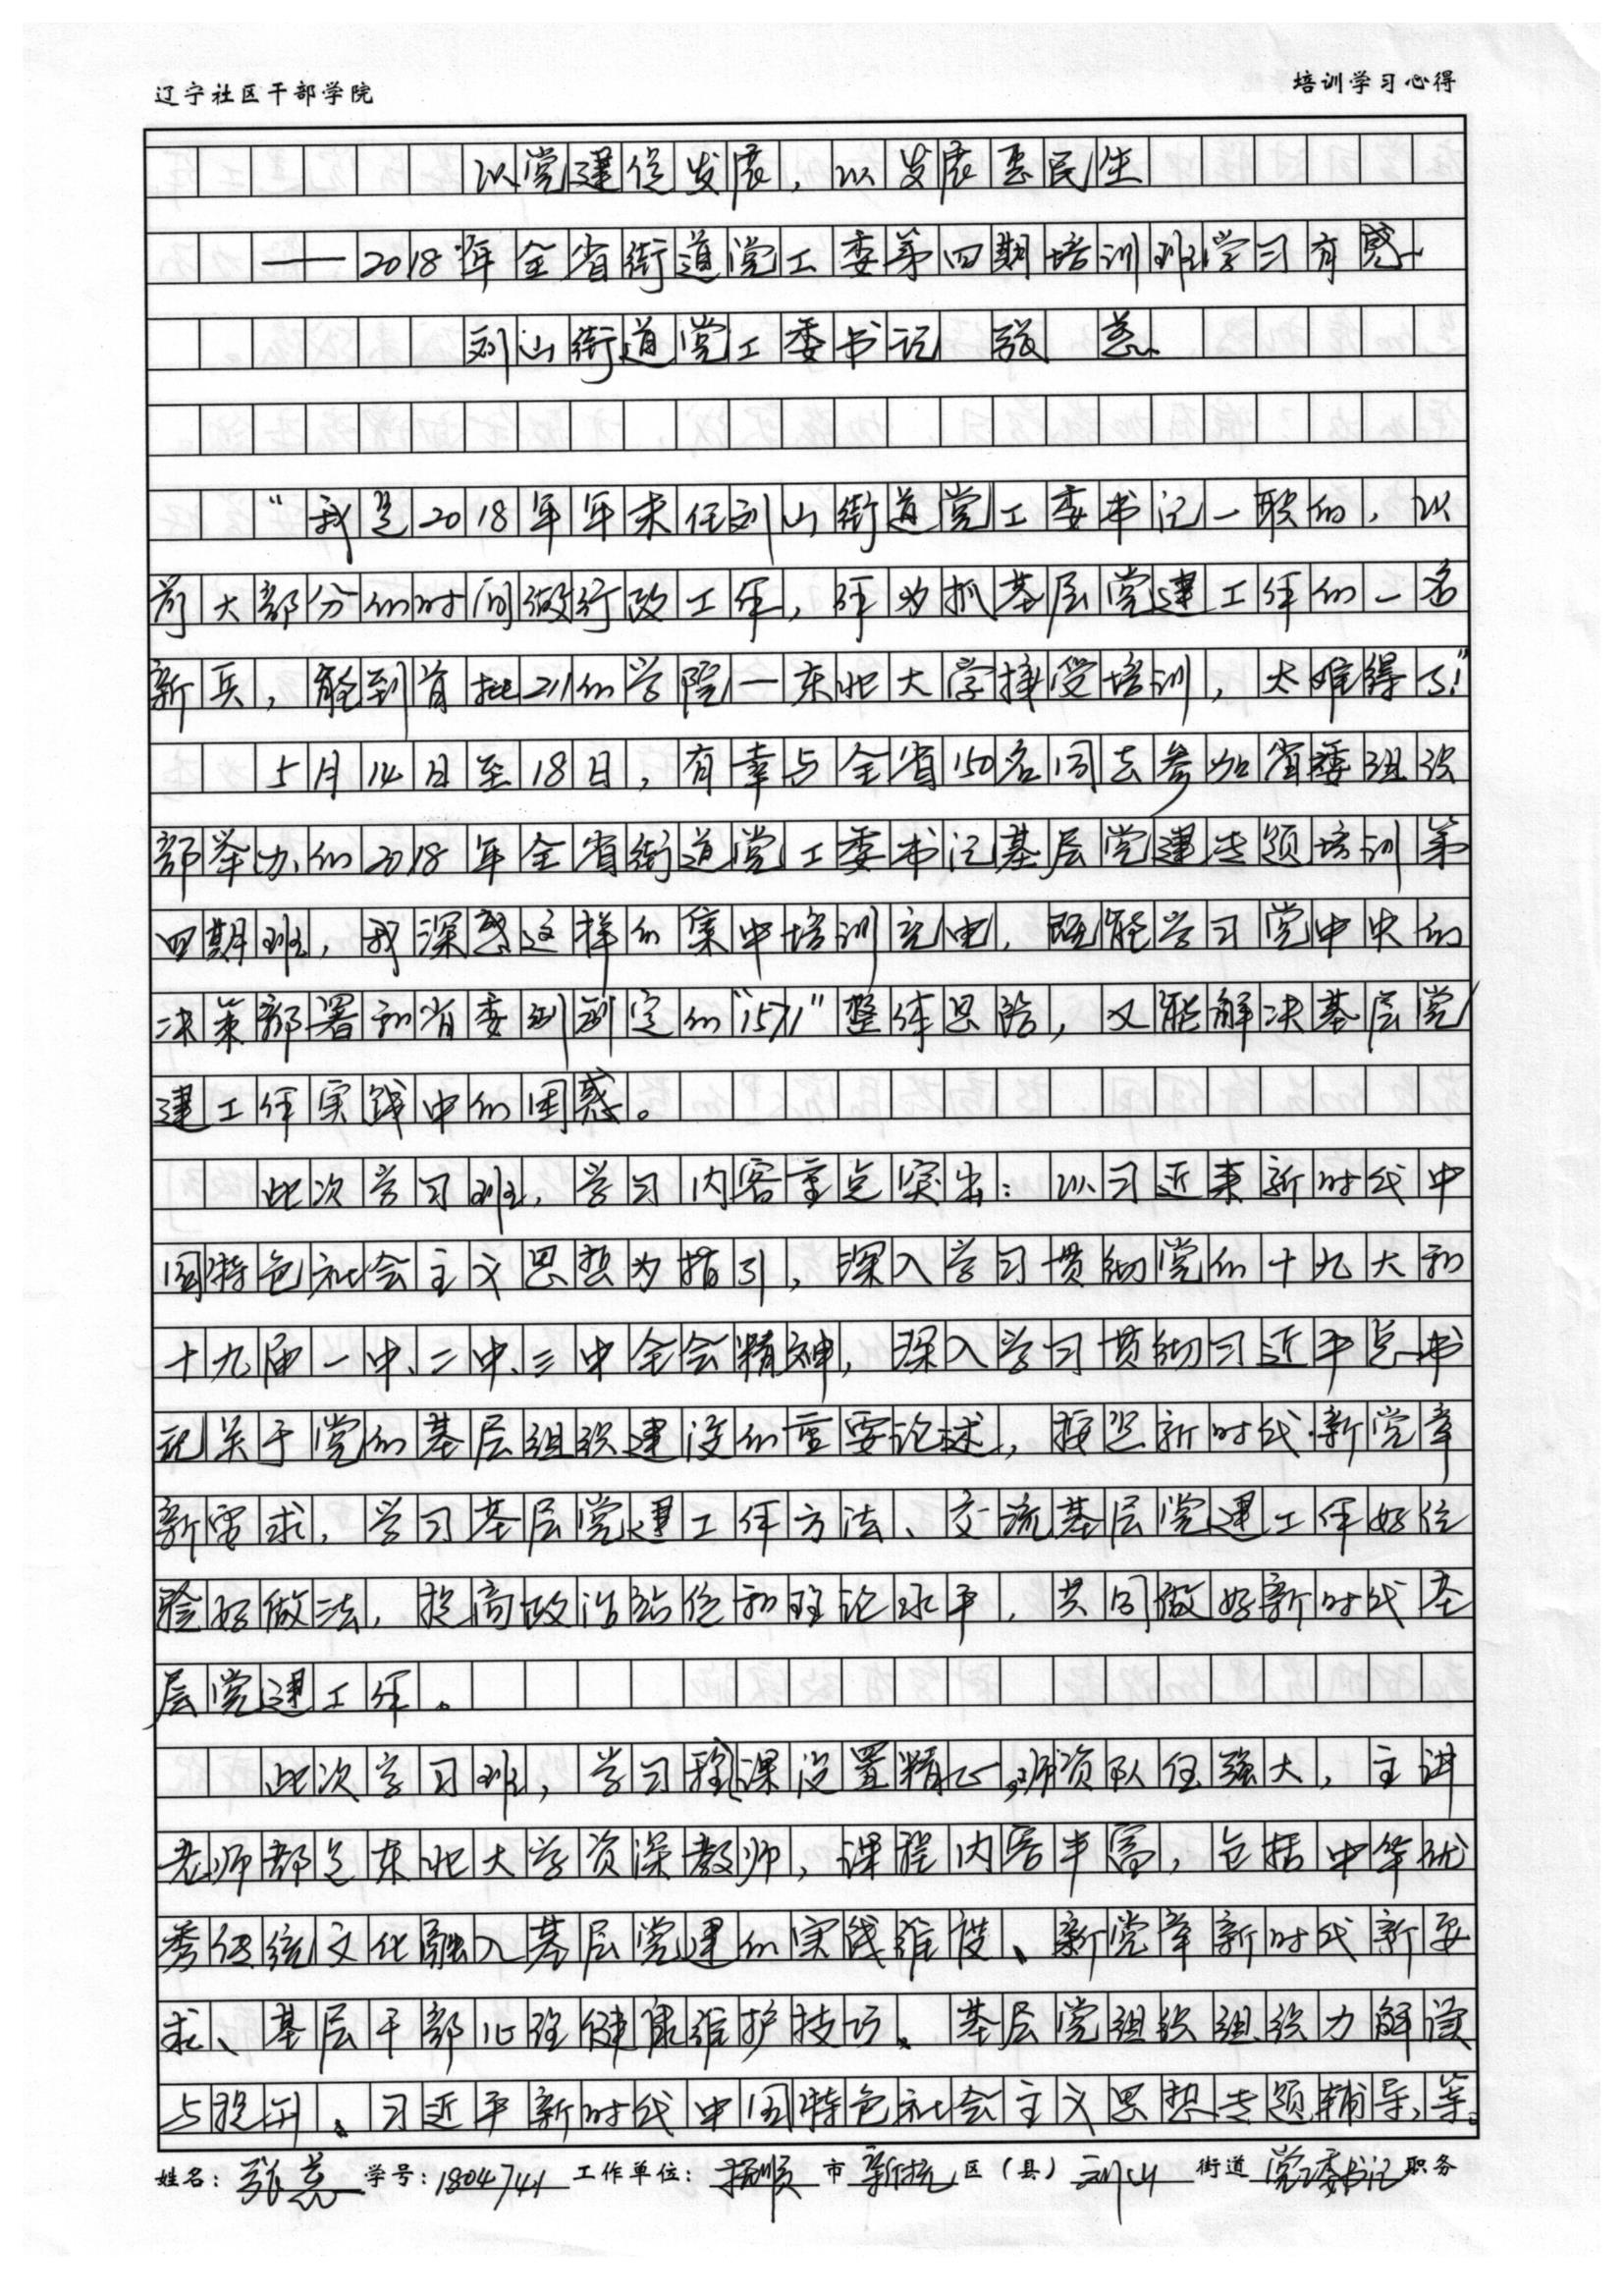 辽宁社区干部学院
培训学习心得
以党建促发展，以发展惠民生
——2018年全省街道党工委第四期培训班学习有感
刘山街道党工委书记 张
“我是2018年年末任刘山街道党工委书记一职的，以
前大部分的时间做行政工作，作为抓基层党建工作的一名
新兵，能到首批211的学院—东北大学接受培训，太难得了！”
5月14日至18日，有幸与全省150名同志参加省委组织
部举办的2018年全省街道党工委书记基层党建专题培训第
四期班，我深感这样的集中培训充电，既能学习党中央的
决策部署和省委制定的“1571”整体思路，又能解决基层党
建工作实践中的困惑。
此次学习班，学习内容重点突出：以习近平新时代中
国特色社会主义思想为指引，深入学习贯彻党的十九大和
十九届一中、二中、三中全会精神，深入学习贯彻习近平总书
记关于党的基层组织建设的重要论述，按照新时代新党章
新要求，学习基层党建工作方法、交流基层党建工作好经
验好做法，提高政治站位和理论水平，共同做好新时代基
层党建工作。
此次学习班，学习程课设置精心，师资队伍强大，主讲
老师都是东北大学资深教师，课程内容丰富，包括中华优
秀传统文化融入基层党建的实践维度、新党章新时代新要
求、基层干部心理健康维护技巧、基层党组织组织力解读
与提升、习近平新时代中国特色社会主义思想专题辅导等。
姓名：张 学号：1804741 工作单位：抚顺 市 新抚 区（县） 刘山 街道 党工委书记 职务